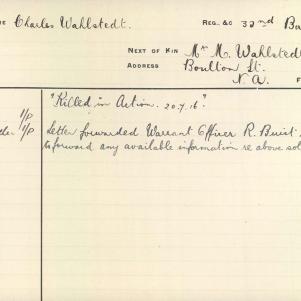 Charles Wahlstedt. REG. &C 32nd
NEXT OF KIN Mr M. Wahlstedt
ADDRESS Boulton St.
N. A.
"Killed in Action. 20.7.16."
1/P
1/P Letter forwarded Warrant Officer R. Buist
to forward any available information re above sol